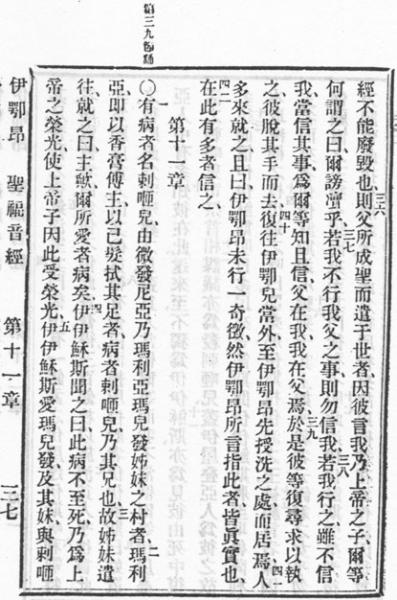 經不能廢毀也、三六則父所成聖而遣于世者、因彼言我乃上帝之子、爾等
何謂之曰、爾謗瀆乎、三七若我不行我父之事、則勿信我、三八若我行之、雖不信
我、當信其事、爲爾等知且信父在我、我在父焉、三九於是彼等復尋求以執
之、彼脫其手而去、四十復往伊鄂兒當外、至伊鄂昂先授洗之處而居焉、四一人
多來就之、且曰、伊鄂昂未行一奇徵、然伊鄂昂所言指此者、皆眞實也、
四二在此有多者信之、
第十一章
〇一有病者名剌咂兒、由微發尼亞、乃瑪利亞瑪兒發姊妹之村者、二瑪利
亞即以香膏傅主、以己髮拭其足者、病者剌咂兒乃其兄也、三故姊妹遣
往就之曰、主歟、爾所愛者病矣、四伊伊穌斯聞之曰、此病不至死、乃爲上
帝之榮光、使上帝子因此受榮光、五伊伊穌斯愛瑪兒發及其妹與剌咂
伊鄂昂 聖福音經 第十一章